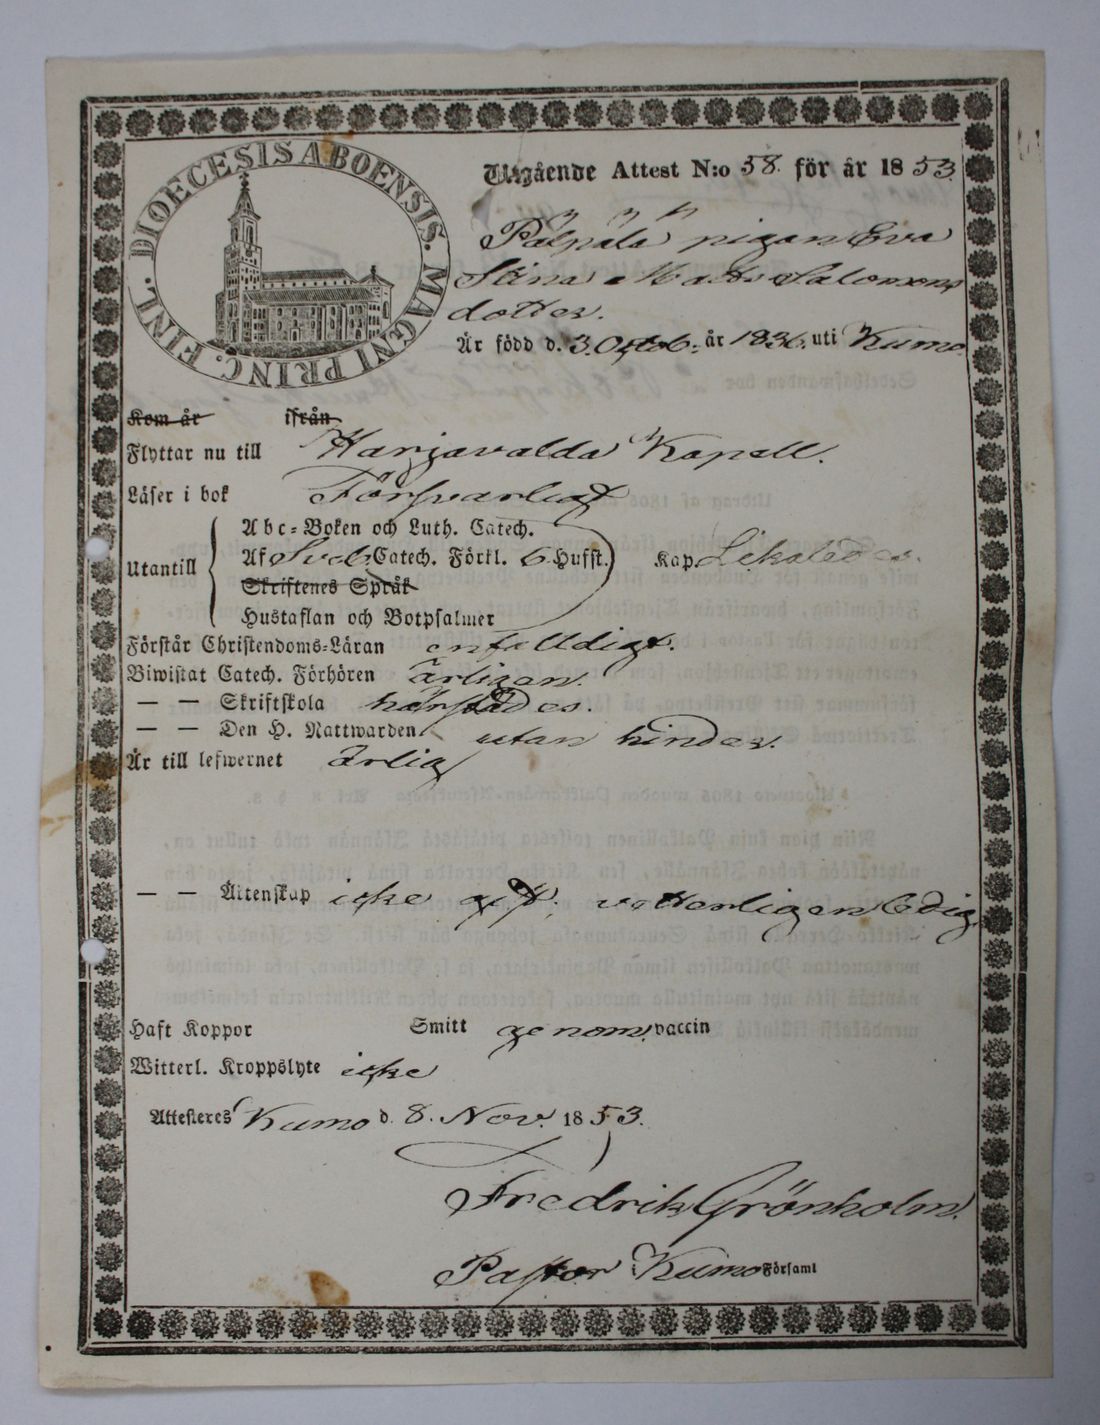 DIOECESIS ABOENSIS. MAGNI PRINC. FINL.
Utgående Attest N:o 58. för år 1853.
Pälpälä pigan Eva
Stina Matts Salomons
dotter.
Är född d. 3. Octob. år 1836. uti Kumo.
Kom år ifrån
Flyttar nu till Harjavalda Kapell.
Läser i bok Försvarligt
Utantill
Abc-Boken och Luth. Catech.
Af Sveb. Catech. Förkl. 6 Hufst. Kap Likaledes.
Skriftenes Språk
Hustaflan och Botpsalmer
Förstår Christendoms-Läran enfalldigt.
Biwistat Catech. Förhören årligen.
— — Skriftskola härstädes.
— — Den H. Nattwarden utan hinder.
Är till lefwernet ärlig
— — Äktenskap icke gift, vetterligen ledig.
Haft Koppor Smitt genom vaccin
Witterl. Kroppslyte icke
Attesteres Kumo d. 8. Nov. 1853.
Fredrik Grönholm.
Pastor i Kumo Församl